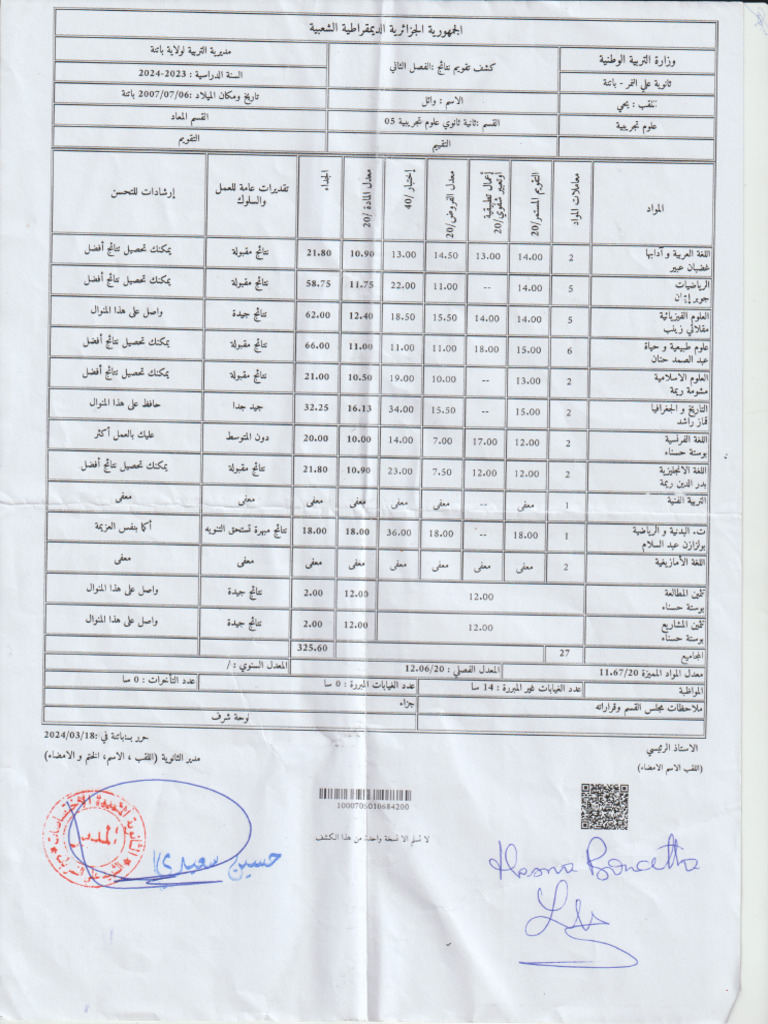 الجمهورية الجزائرية الديمقراطية الشعبية
وزارة التربية الوطنية
كشف تقويم نتائج :الفصل الثاني
مديرية التربية لولاية باتنة
ثانوية علي النمر - باتنة
السنة الدراسية : 2023-2024
اللقب : يحي
الاسم : وائل
تاريخ ومكان الميلاد :2007/07/06 باتنة
علوم تجريبية
القسم :ثانية ثانوي علوم تجريبية 05
القسم المعاد
التقييم
التقويم
المواد معاملات المواد التقويم المستمر/20 أعمال تطبيقية اوتعبير شفوي/20 معدل الفروض/20 إختبار/40 معدل المادة /20 الجداء تقديرات عامة للعمل والسلوك إرشادات للتحسن
اللغة العربية و آدابها 2 14.00 13.00 14.50 13.00 10.90 21.80 نتائج مقبولة يمكنك تحصيل نتائج أفضل
غضبان عبير
الرياضيات 5 14.00 -- 11.00 22.00 11.75 58.75 نتائج مقبولة يمكنك تحصيل نتائج أفضل
العلوم الفيزيائية 5 14.00 14.00 15.50 18.50 12.40 62.00 نتائج جيدة واصل على هذا المنوال
مقلاتي زينب
علوم طبيعية و حياة 6 15.00 18.00 11.00 11.00 11.00 66.00 نتائج مقبولة يمكنك تحصيل نتائج أفضل
عبد الصمد حنان
العلوم الاسلامية 2 13.00 -- 10.00 19.00 10.50 21.00 نتائج مقبولة يمكنك تحصيل نتائج أفضل
مشومة ريمة
التاريخ و الجغرافيا 2 15.00 -- 15.50 34.00 16.13 32.25 جيد جدا حافظ على هذا المنوال
قماز راشد
اللغة الفرنسية 2 12.00 17.00 7.00 14.00 10.00 20.00 دون المتوسط عليك بالعمل أكثر
بوستة حسناء
اللغة الانجليزية 2 12.00 12.00 7.50 23.00 10.90 21.80 نتائج مقبولة يمكنك تحصيل نتائج أفضل
بدر الدين ريمة
التربية الفنية 1 معفى -- معفى معفى معفى معفى معفى معفى
ت. البدنية و الرياضية 1 18.00 -- 18.00 36.00 18.00 18.00 نتائج مبهرة تستحق التنويه أكما بنفس العزيمة
بولزازن عبد السلام
اللغة الأمازيغية 2 معفى معفى معفى معفى معفى معفى معفى معفى
تثمين المطالعة 12.00 12.00 2.00 نتائج جيدة واصل على هذا المنوال
بوستة حسناء
تثمين المشاريع 12.00 12.00 2.00 نتائج جيدة واصل على هذا المنوال
بوستة حسناء
المجاميع 27 325.60
معدل المواد المميزة 11.67/20 المعدل الفصلي : 12.06/20 المعدل السنوي : /
المواظبة عدد الغيابات غير المبررة : 14 سا عدد الغيابات المبررة : 0 سا عدد التأخرات : 0 سا
ملاحظات مجلس القسم وقراراته جزاء
لوحة شرف
حرر بـباتنة في :2024/03/18
الاستاذ الرئيسي
مدير الثانوية (اللقب ، الاسم، الختم و الامضاء)
(اللقب الاسم الامضاء)
1000705010684200
لا تسلم الا نسخة واحدة من هذا الكشف
المدير
حسين سعيدي